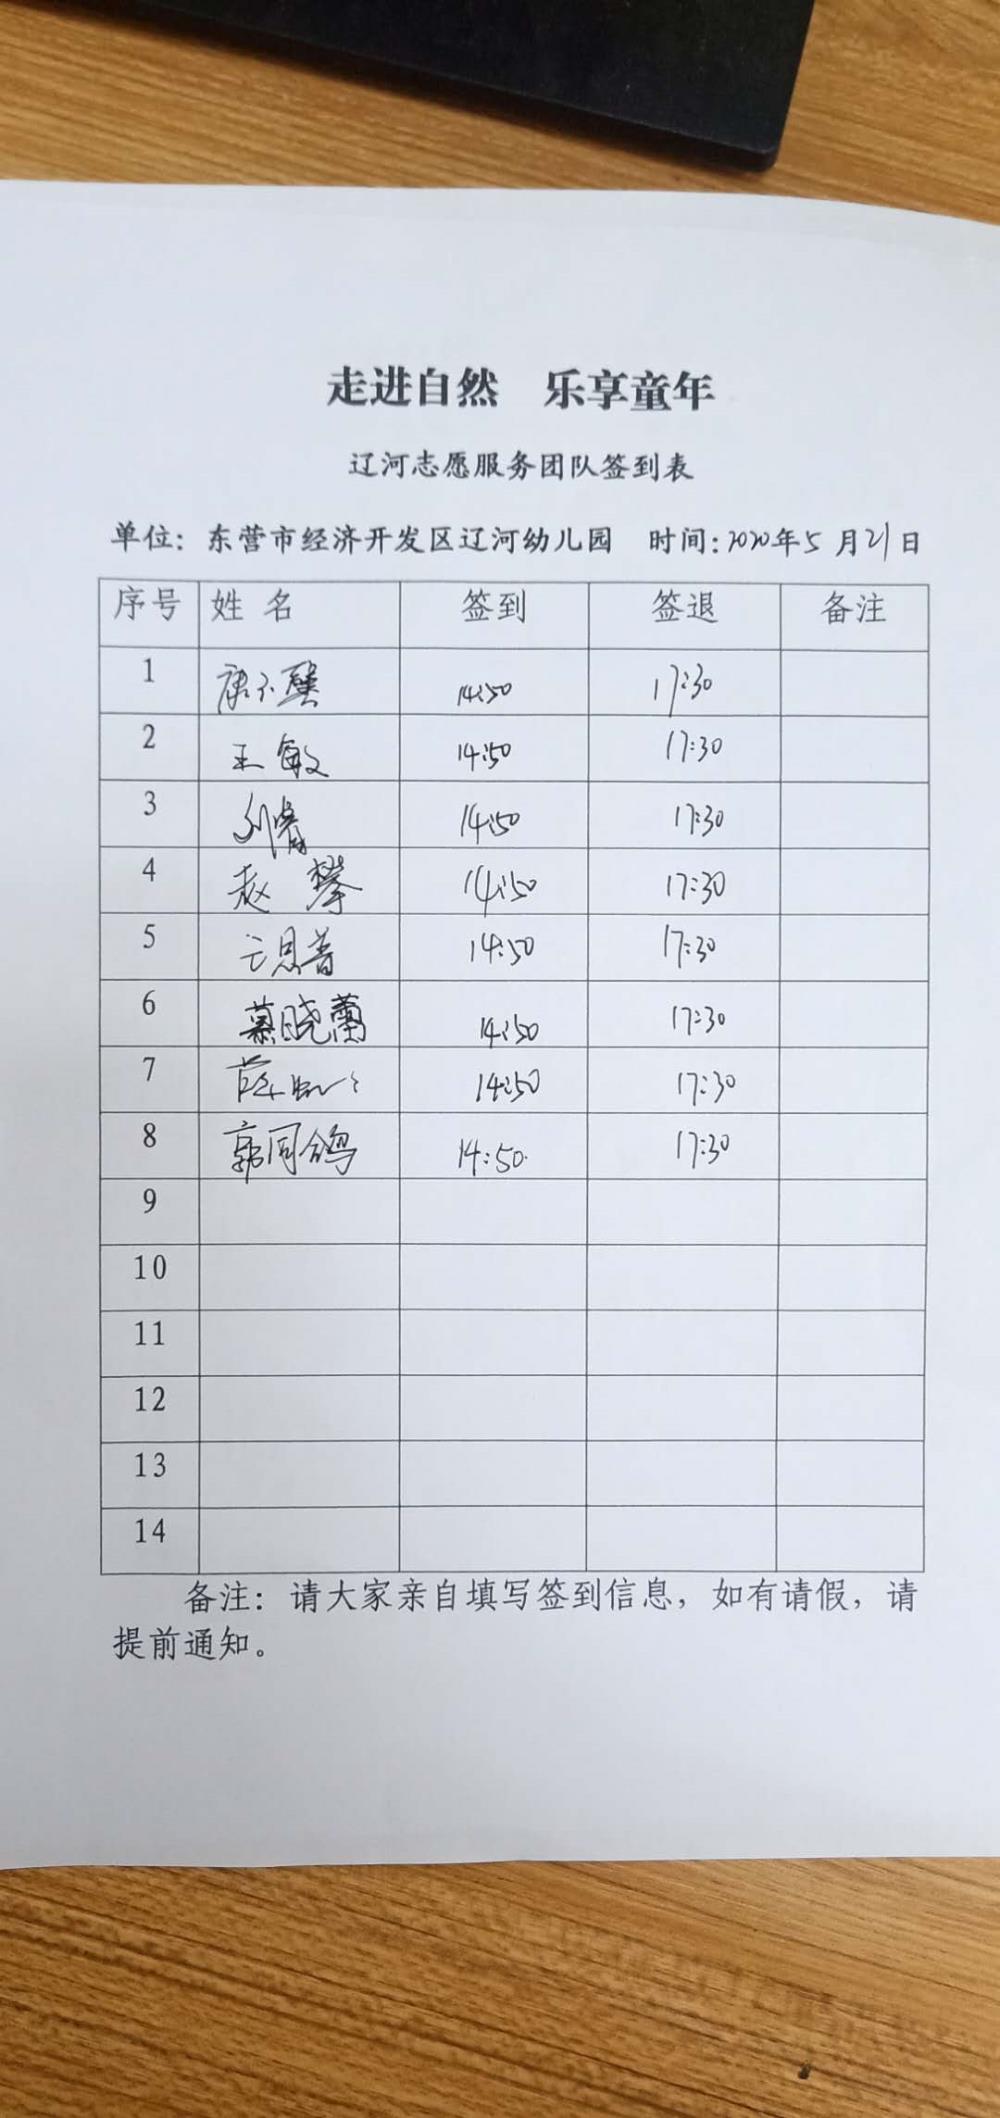 走进自然 乐享童年
辽河志愿服务团队签到表
单位：东营市经济开发区辽河幼儿园 时间：2020年5月21日
序号 姓名 签到 签退 备注
1 14:50 17:30
2 王敏 14:50 17:30
3 14:50 17:30
4 赵攀 14:50 17:30
5 14:50 17:30
6 慕晓蕾 14:50 17:30
7 14:50 17:30
8 郭同鸽 14:50 17:30
9
10
11
12
13
14
备注：请大家亲自填写签到信息，如有请假，请
提前通知。